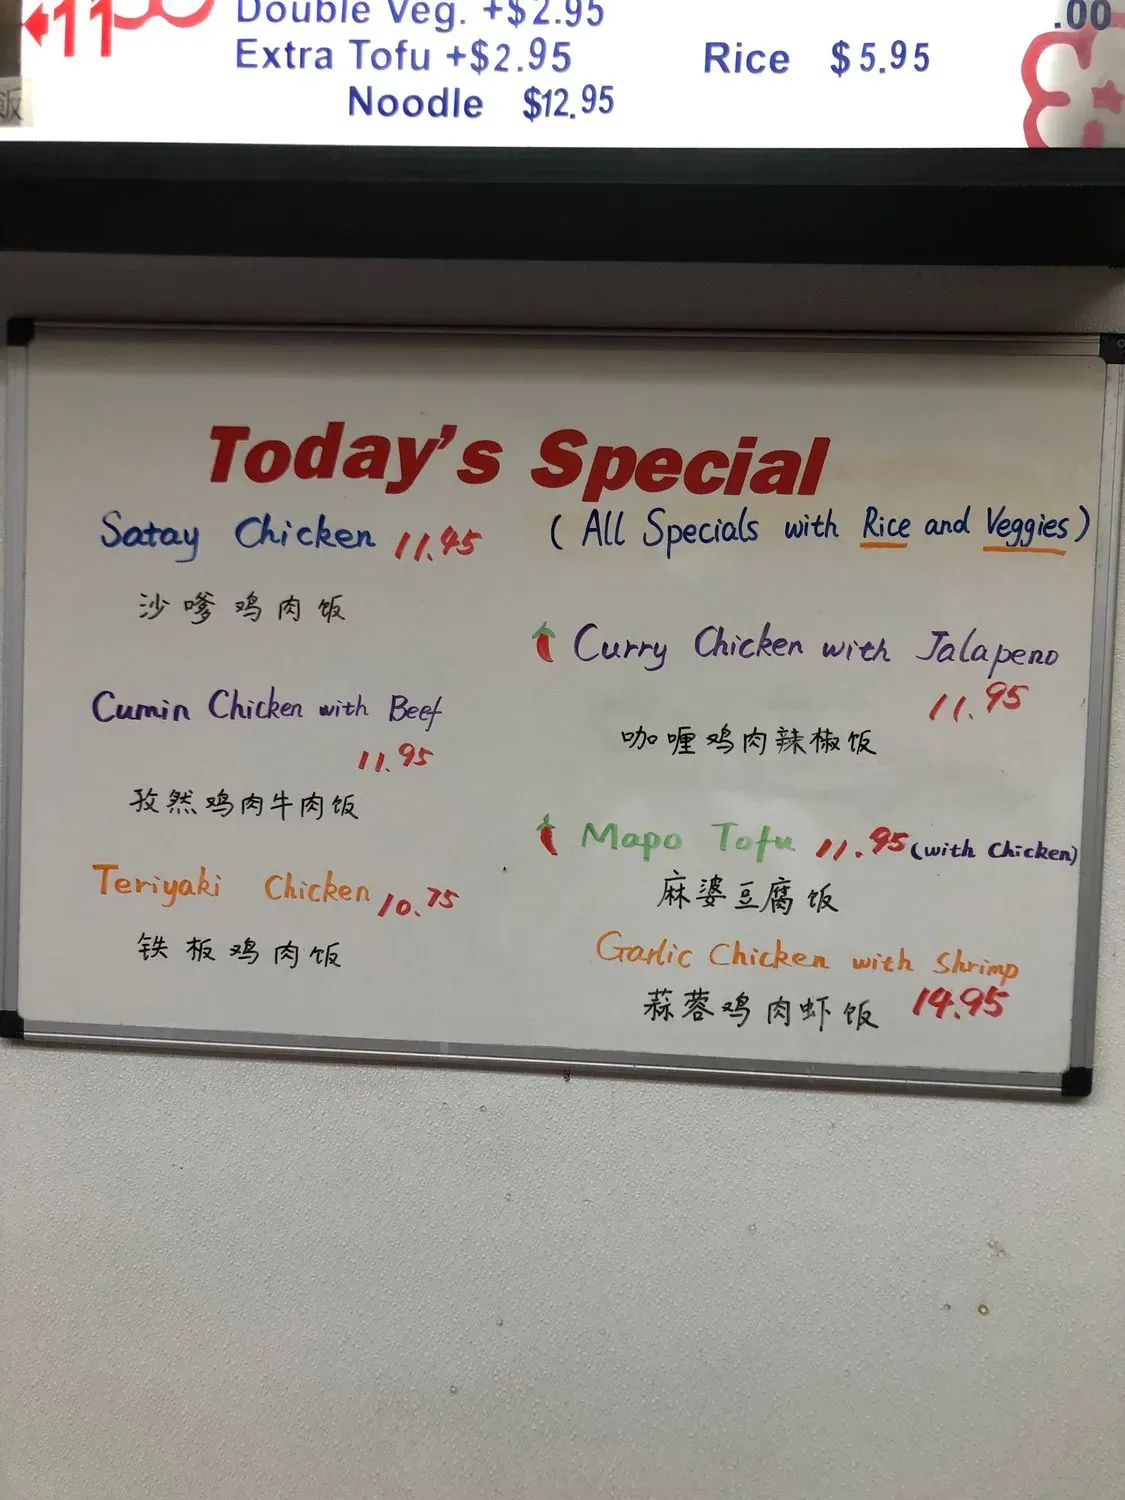 11
Double Veg. +$2.95
.00
Extra Tofu +$2.95
Rice $5.95
Noodle $12.95
饭
Today's Special
Satay Chicken 11.45
沙嗲鸡肉饭
Cumin Chicken with Beef
11.95
孜然鸡肉牛肉饭
Teriyaki Chicken 10.75
铁板鸡肉饭
(All Specials with Rice and Veggies)
Curry Chicken with Jalapeno
11.95
咖喱鸡肉辣椒饭
Mapo Tofu 11.95 (with Chicken)
麻婆豆腐饭
Garlic Chicken with Shrimp
蒜蓉鸡肉虾饭 14.95